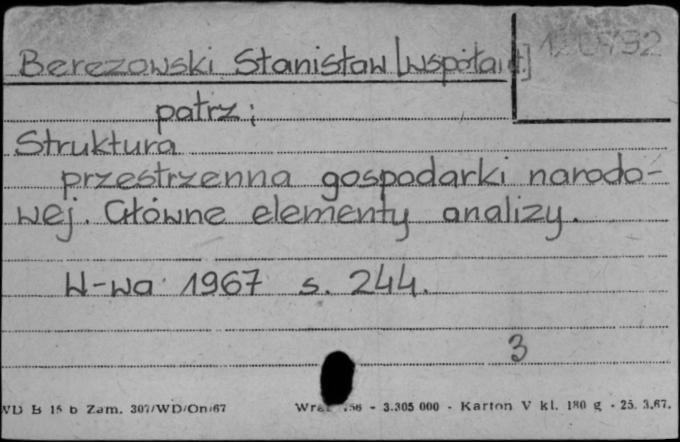 Berezowski Stanisław [współaut.]
patrz:
Struktura
przestrzenna gospodarki narodo-
wej. Główne elementy analizy.
W-wa 1967 s. 244.
3
WD B 15 b Zam. 307/WD/On/67 - 3.305 000 - Karton V kl. 180 g - 25. 3.67.